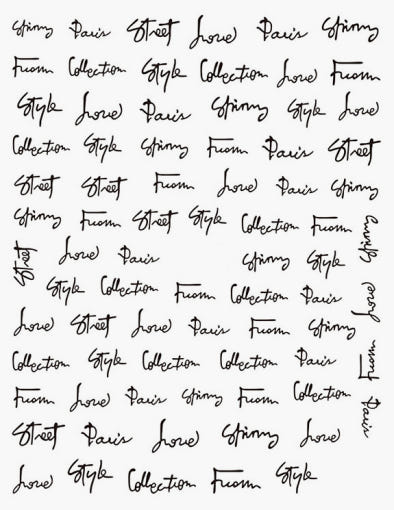 Spinny Paris Street Love Paris Spinny
From Collection Style Collection Love From
Style Love Paris Spinny Style Love
Collection Style Spinny From Paris Street
Street Street From Love Paris Spinny
Spinny From Street Style Collection From Spinny
Street Love Paris Spinny Style
Style Collection From Collection Paris Love
Love Street Love Paris From Spinny
Collection Style Collection Collection Paris From
From Love Paris Spinny From Collection Paris
Street Paris Love Spinny Love
Love Style Collection From Style